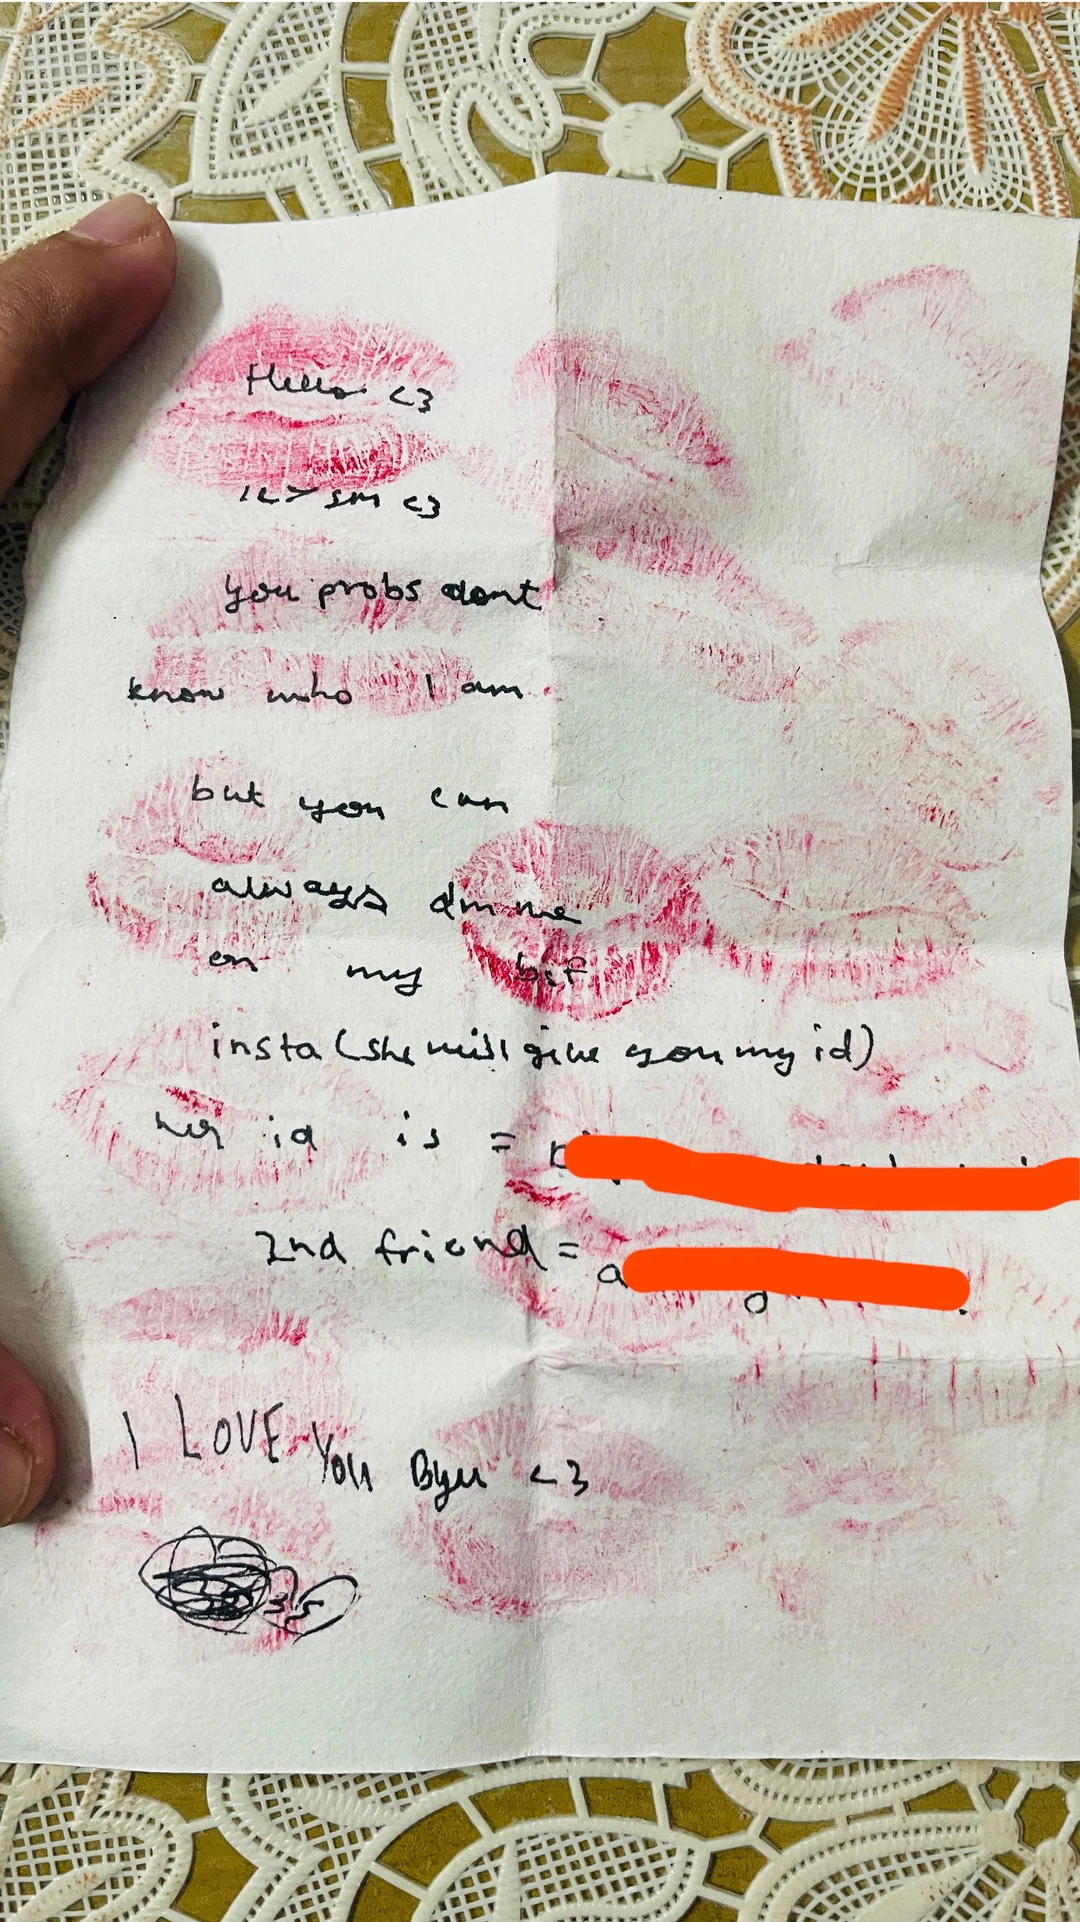 Hello <3
ily sm <3
you probs dont
know who I am
but you can
always dm me
on my bsf
insta (she will give you my id)
her id is =
2nd friend = a
I LOVE You Byu <3